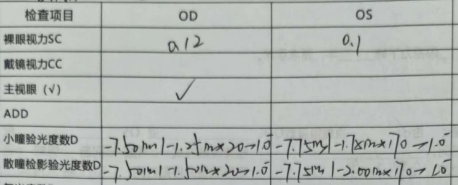 检查项目 OD OS
裸眼视力SC 0.12 0.1
戴镜视力CC
主视眼（√） ✓
ADD
小瞳验光度数D -7.50/-1.25×20→1.0 -7.75/-1.75×170→1.0
散瞳检影验光度数D -7.50/-1.50×20→1.0 -7.75/-2.00×170→1.0